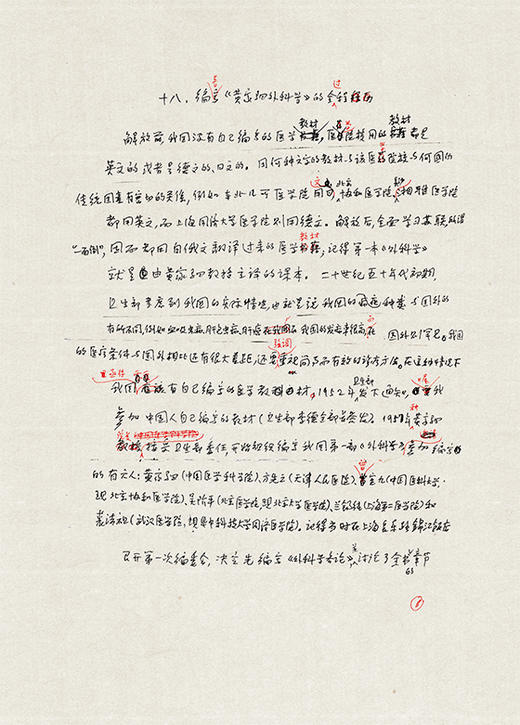 十八、编写《黄家驷外科学》的全过程
解放前,我国没有自己编写的医学教材,医学院校用的教材都是
英文的或者是德文的、日文的。用何种文字的教材,与该医学院校与何国的
传统因素有密切的关系,例如东北几所医学院用日文,北京协和医学院、湘雅医学院
都用英文,而上海同济大学医学院则用德文。解放后,全面学习苏联,所谓
“一面倒”,因而都用自俄文翻译过来的医学教材,记得第一本《外科学》
就是由黄家驷教授主译的课本。二十世纪五十年代初期
卫生部考虑到我国的实际情况,也就是说我国的疾病种类与国外的
有所不同,例如血吸虫病、肝包虫病、肝癌在我国的发病率很高,而国外则罕见。我国
的医疗条件与国外相比还有很大差距,还要强调简易而有效的诊疗方法。在这种情况下
我国应该有自己编写的医学教材,1952年卫生部发下通知,我
参加中国人自己编写的教材(卫生部李德全部长签发)。1957年黄家驷
教授接受卫生部委任,开始组织编写我国第一部《外科学》,参加编写
的有六人:黄家驷(中国医学科学院)、方先之(天津人民医院)、曾宪九(中国医科大学,
现北京协和医学院)、吴阶平(北京医学院,现北京大学医学院)、兰锡纯(上海第二医学院)和
裘法祖(武汉医学院,现华中科技大学同济医学院)。记得当时在上海音乐路锦江饭店
召开第一次编委会,决定先编写《外科学各论》,并讨论了全书的章节